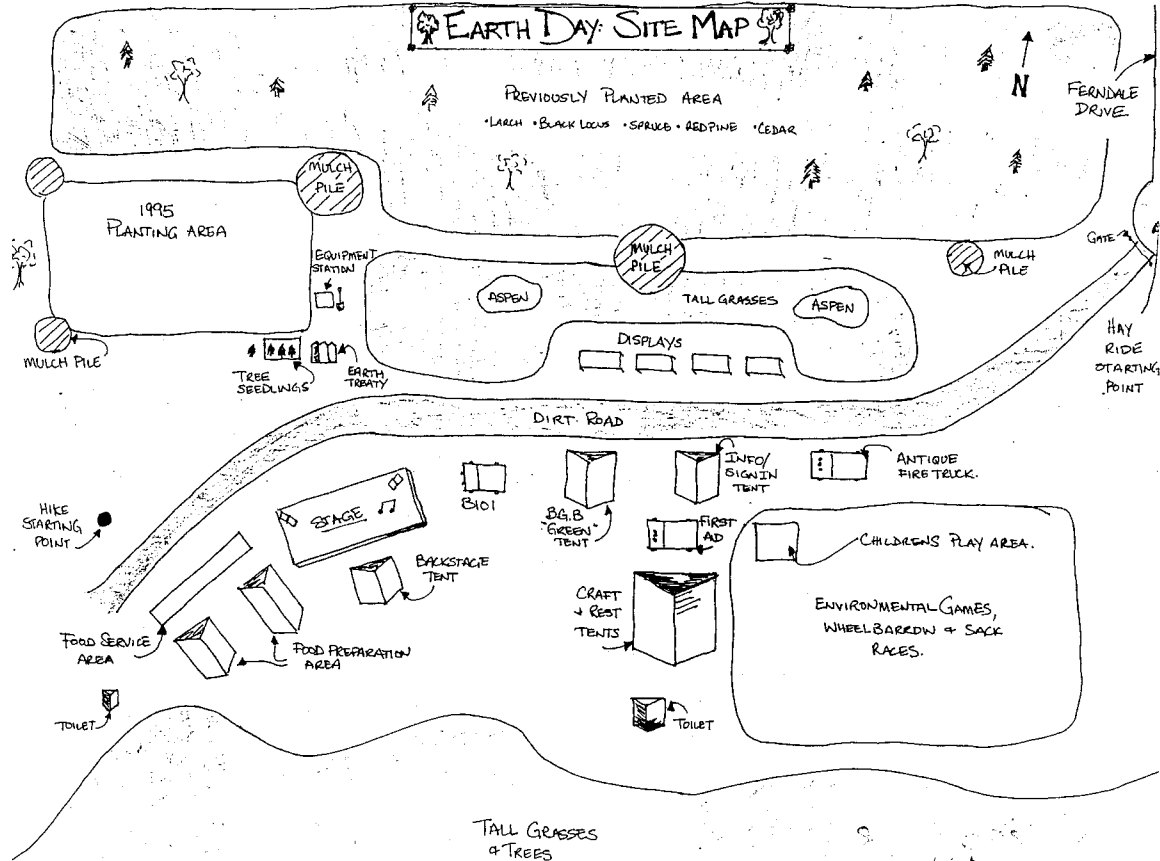 EARTH DAY: SITE MAP
PREVIOUSLY PLANTED AREA
•LARCH •BLACK LOCUS •SPRUCE •RED PINE •CEDAR
N
FERNDALE
DRIVE
MULCH
PILE
1995
PLANTING AREA
EQUIPMENT
STATION
MULCH
PILE
GATE
MULCH
PILE
ASPEN
TALL GRASSES
ASPEN
DISPLAYS
HAY
RIDE
STARTING
POINT
MULCH PILE
TREE
SEEDLINGS
EARTH
TREATY
DIRT ROAD
HIKE
STARTING
POINT
STAGE
B101
B.G.B
"GREEN"
TENT
INFO/
SIGN IN
TENT
ANTIQUE
FIRE TRUCK.
FIRST
AD
CHILDRENS PLAY AREA.
BACKSTAGE
TENT
CRAFT
+ REST
TENTS
ENVIRONMENTAL GAMES,
WHEELBARROW + SACK
RACES.
FOOD SERVICE
AREA
FOOD PREPARATION
AREA
TOILET
TOILET
TALL GRASSES
+ TREES